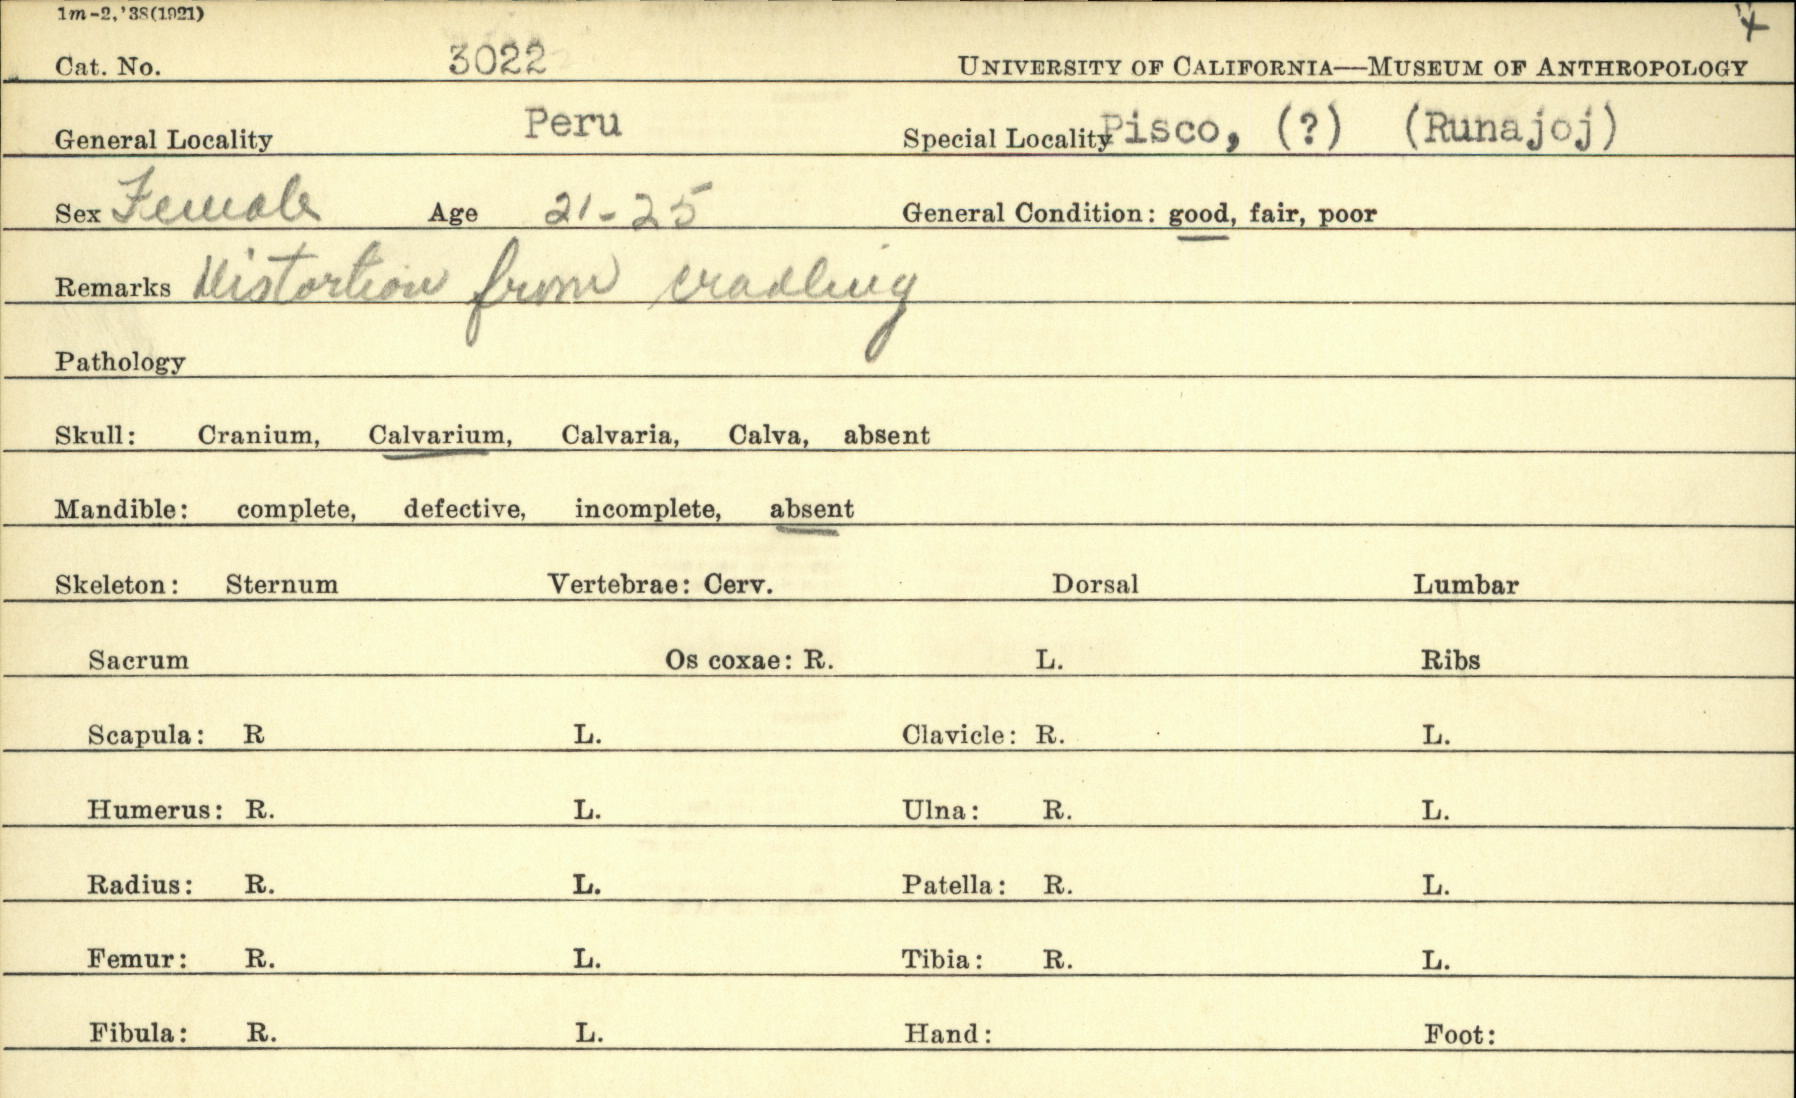 1m-2,'38(1921)
4
Cat. No. 3022 UNIVERSITY OF CALIFORNIA—MUSEUM OF ANTHROPOLOGY
General Locality Peru Special Locality Pisco, (?) (Runajoj)
Sex Female Age 21-25 General Condition: good, fair, poor
Remarks Distortion from cradling
Pathology
Skull: Cranium, Calvarium, Calvaria, Calva, absent
Mandible: complete, defective, incomplete, absent
Skeleton: Sternum Vertebrae: Cerv. Dorsal Lumbar
Sacrum Os coxae: R. L. Ribs
Scapula: R L. Clavicle: R. L.
Humerus: R. L. Ulna: R. L.
Radius: R. L. Patella: R. L.
Femur: R. L. Tibia: R. L.
Fibula: R. L. Hand: Foot: